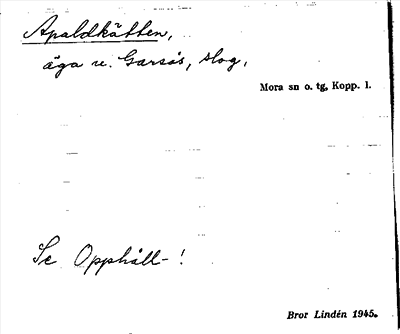 Apaldkätten,
äga u. Garsås, skog,
Mora sn o. tg, Kopp. l.
Se Opphåll- !
Bror Lindén 1945.